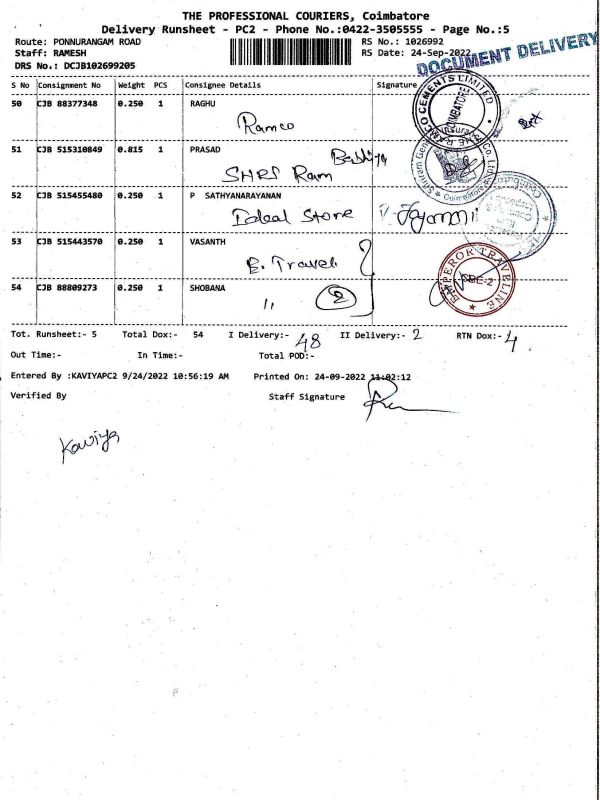 THE PROFESSIONAL COURIERS, Coimbatore
Delivery Runsheet - PC2 - Phone No.:0422-3505555 - Page No.:5
Route: PONNURANGAM ROAD RS No.: 1026992
Staff: RAMESH RS Date: 24-Sep-2022
DOCUMENT DELIVERY
DRS No.: DCJB102699205
S No Consignment No Weight PCS Consignee Details Signature
50 CJB 88377348 0.250 1 RAGHU
Ramco
THE RAMCO CEMENTS LIMITED
COIMBATORE
51 CJB 515310849 0.815 1 PRASAD
SHRS Ram
52 CJB 515455480 0.250 1 P SATHYANARAYANAN
Ideal Store
53 CJB 515443570 0.250 1 VASANTH
E. Travel
EMPEROR TRAVELINE
CBE-2
54 CJB 88809273 0.250 1 SHOBANA
" 2
Tot. Runsheet:- 5 Total Dox:- 54 I Delivery:- 48 II Delivery:- 2 RTN Dox:- 4
Out Time:- In Time:- Total POD:-
Entered By :KAVIYAPC2 9/24/2022 10:56:19 AM Printed On: 24-09-2022 11:02:12
Verified By Staff Signature
Kaviya